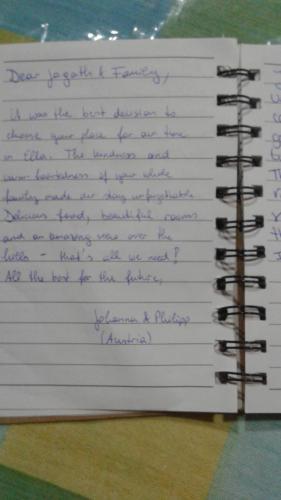 Dear Jagath & Family,
it was the best decision to
choose your place for our time
in Ella. The kindness and
warm-heartedness of your whole
family made our stay unforgettable.
Delicious food, beautiful rooms
and an amazing view over the
hills - that's all we need!
All the best for the future,
Johanna & Philipp
(Austria)